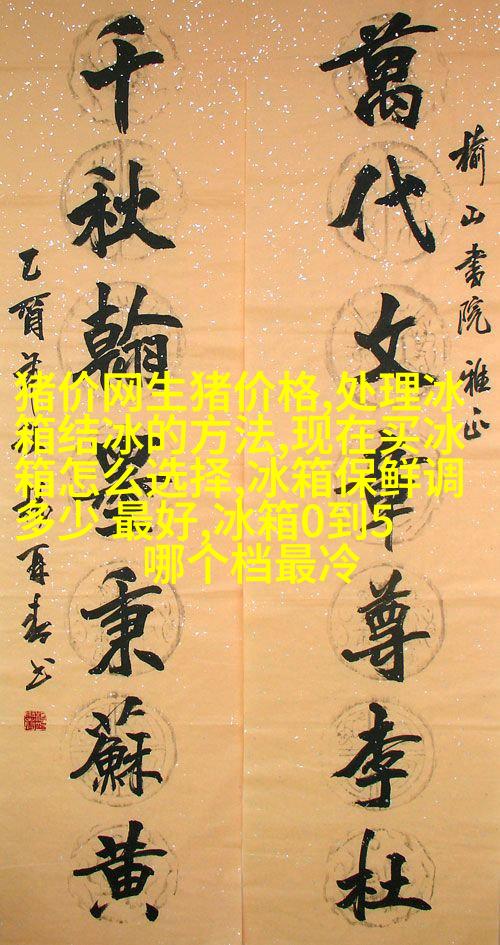 榆山書院雅正
萬代文章尊李杜
千秋翰墨秉蘇黄
乙酉
猪价网生猪价格,处理冰
箱结冰的方法,现在买冰
箱怎么选择,冰箱保鲜调
多少 最好,冰箱0到5
哪个档最冷